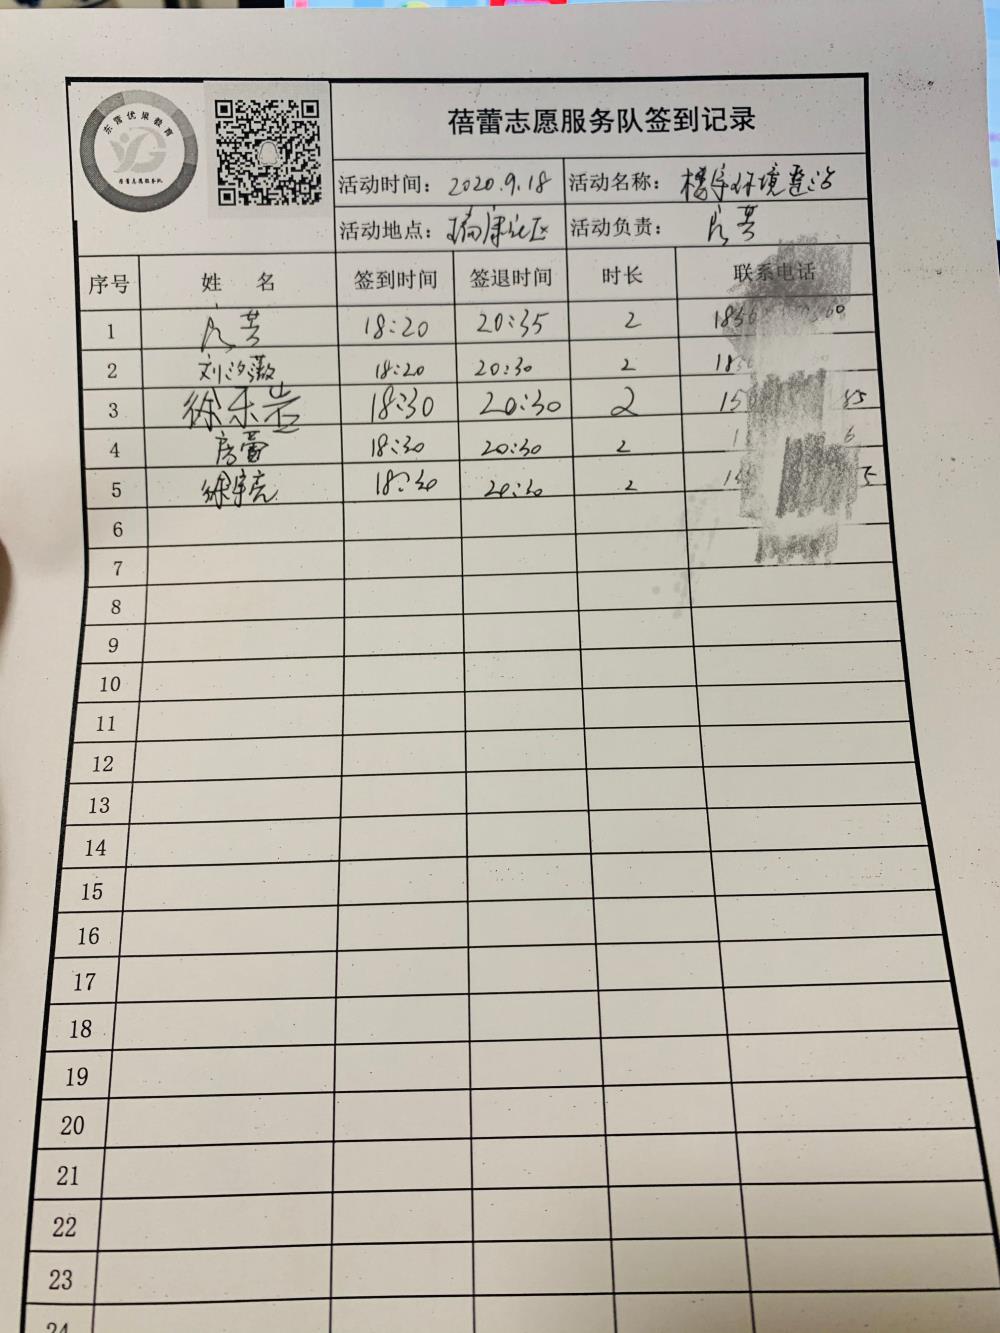 东营优果教育
蓓蕾志愿服务队签到记录
活动时间： 2020.9.18 活动名称： 楼宇环境整治
活动地点： 瑞康社区 活动负责：
序号 姓 名 签到时间 签退时间 时长 联系电话
1 18:20 20:35 2
2 刘汐薇 18:20 20:30 2
3 徐乐岩 18:30 20:30 2
4 房蕾 18:30 20:30 2
5 徐宇亮 18:30 20:30 2
6
7
8
9
10
11
12
13
14
15
16
17
18
19
20
21
22
23
24